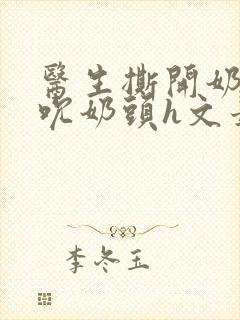 醫生撕開奶
吮奶頭h文
李冬玉